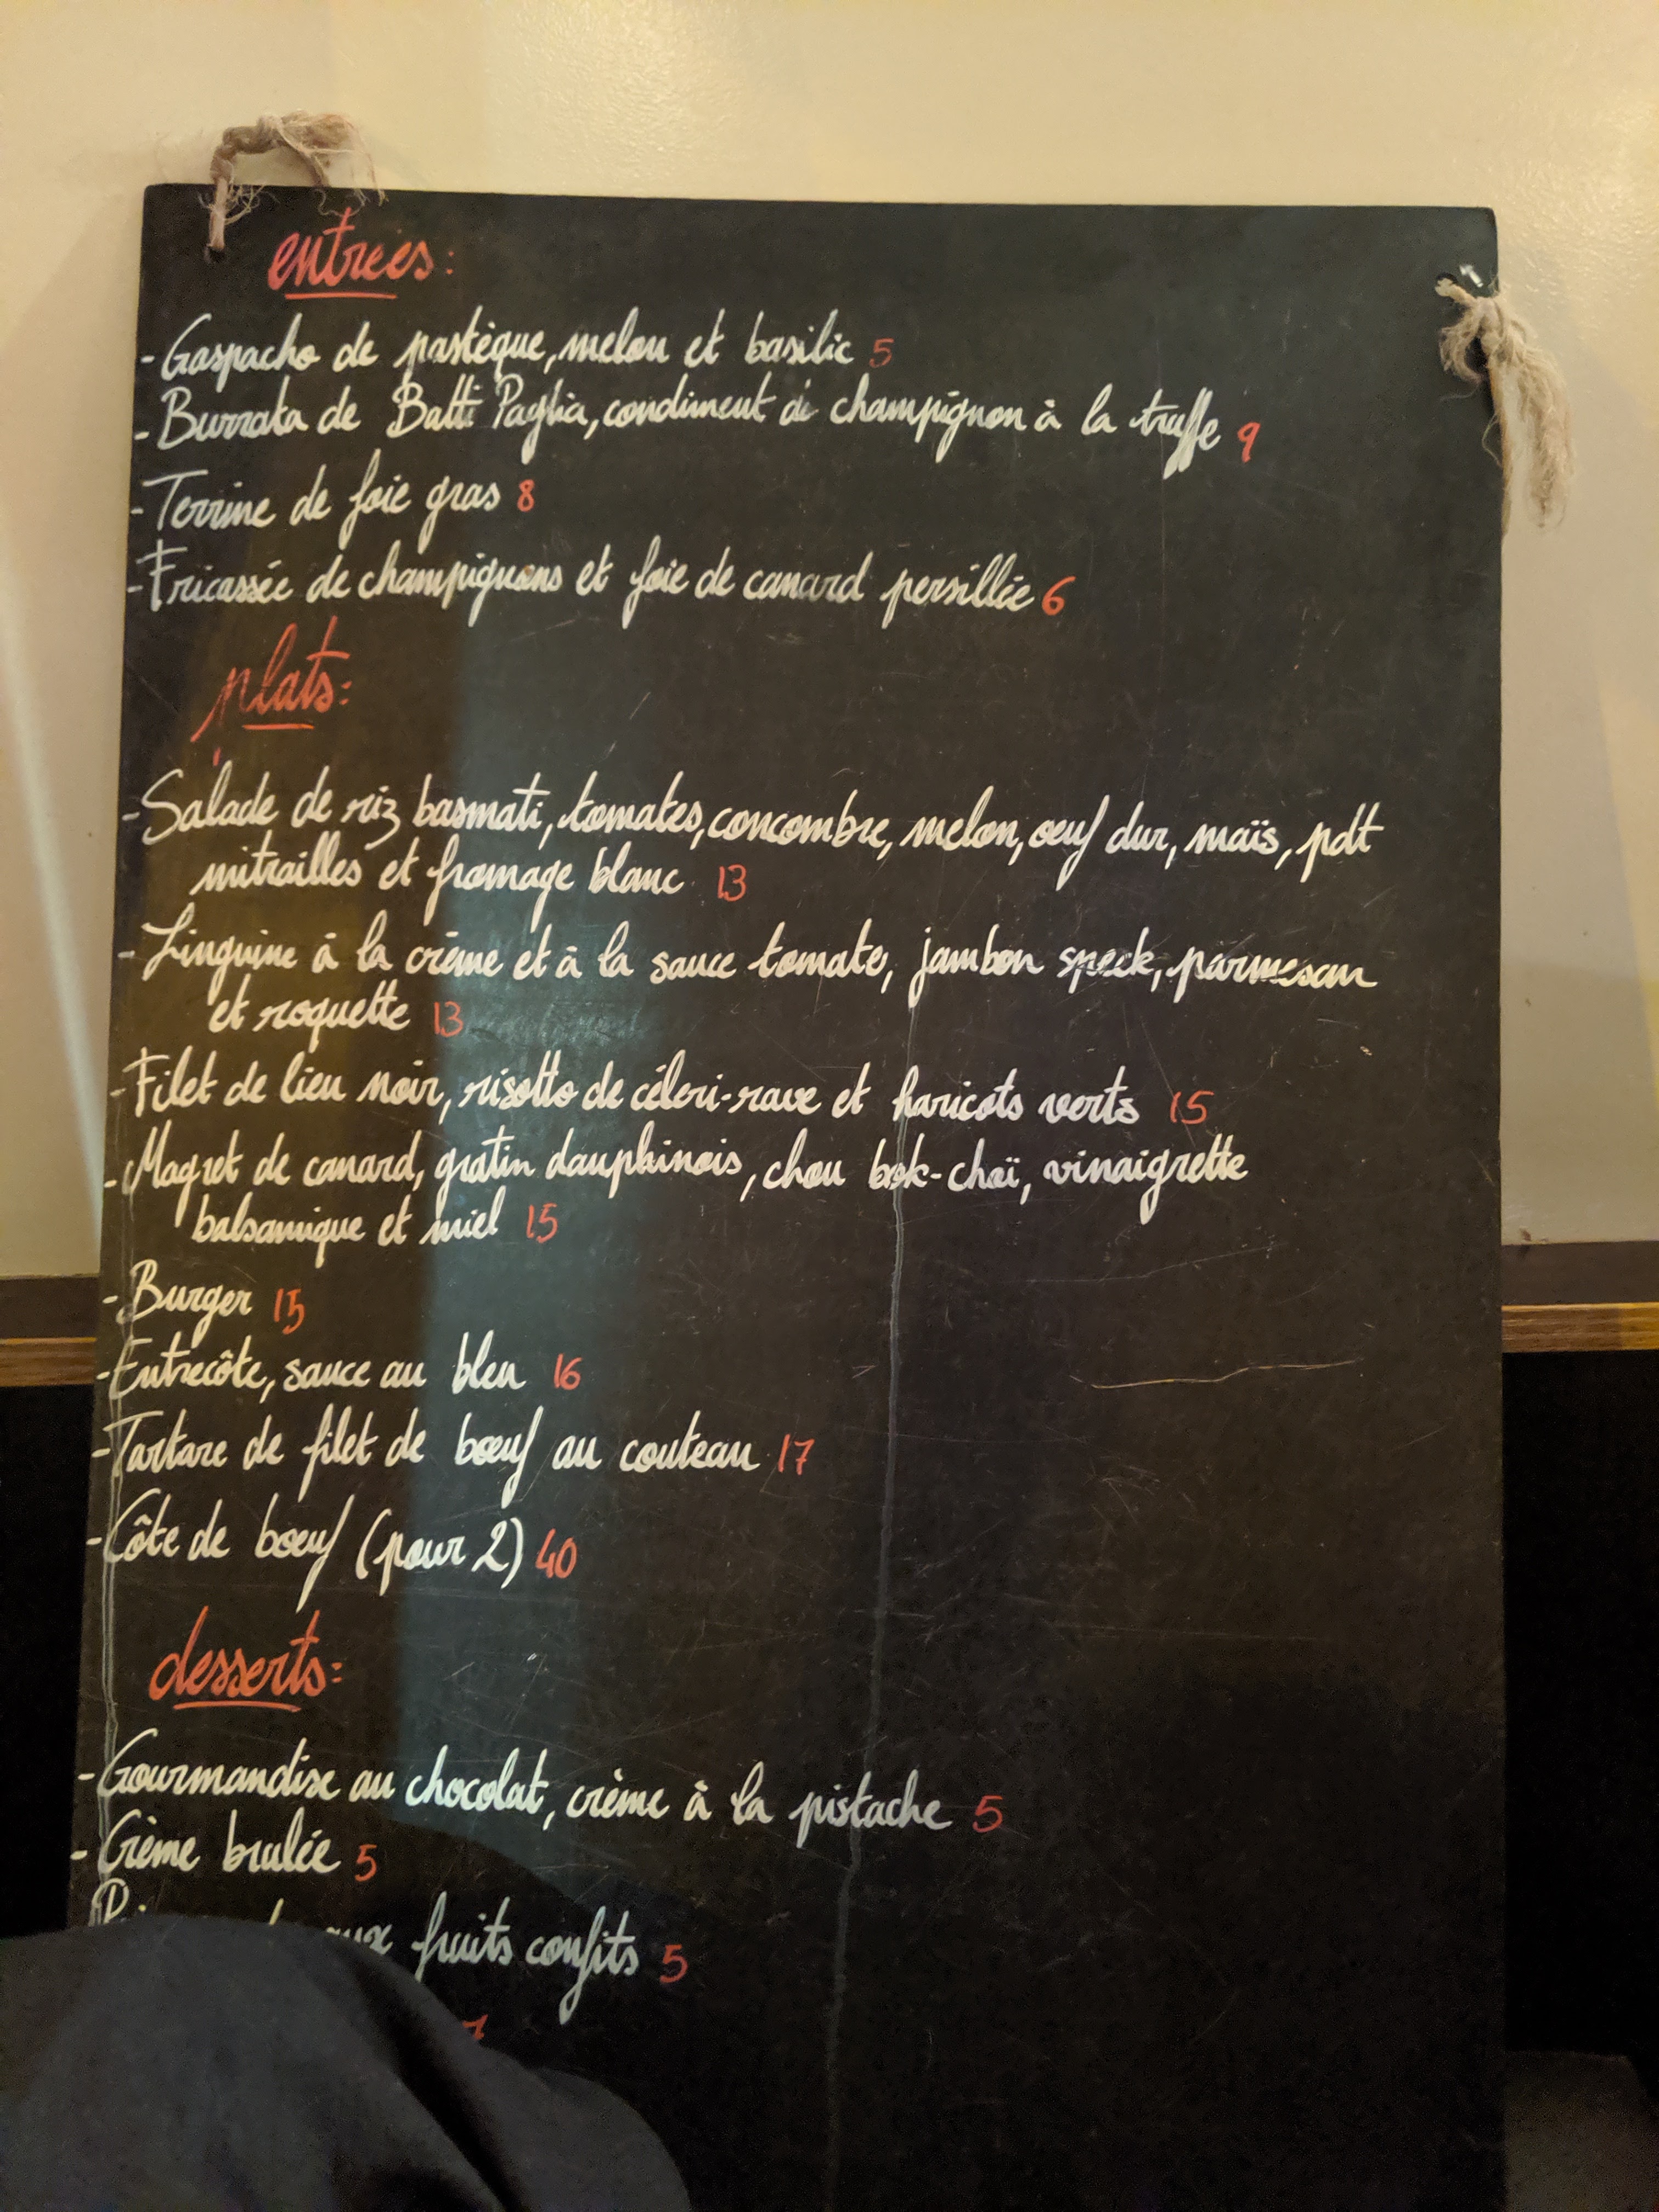 entrées:
- Gaspacho de pastèque, melon et basilic 5
- Burrata de Batti Paglia, condiment de champignon à la truffe 9
- Terrine de foie gras 8
- Fricassée de champignons et foie de canard persillée 6
plats:
- Salade de riz basmati, tomates, concombre, melon, oeuf dur, maïs, pdt
mitrailles et fromage blanc 13
- Linguine à la crème et à la sauce tomate, jambon speck, parmesan
et roquette 13
- Filet de lieu noir, risotto de céleri-rave et haricots verts 15
- Magret de canard, gratin dauphinois, chou bok-choï, vinaigrette
balsamique et miel 15
- Burger 15
- Entrecôte, sauce au bleu 16
- Tartare de filet de boeuf au couteau 17
- Côte de boeuf (pour 2) 40
desserts:
- Gourmandise au chocolat, crème à la pistache 5
- Crème brulée 5
aux fruits confits 5